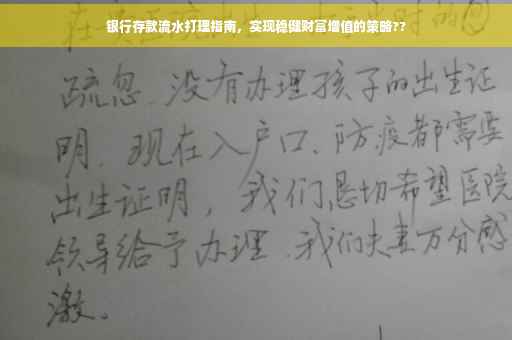 银行存款流水打理指南，实现稳健财富增值的策略??
疏忽、没有办理孩子的出生证
明、现在入户口、防疫都需要
出生证明，我们恳切希望医院
领导给予办理、我们夫妻万分感
激。